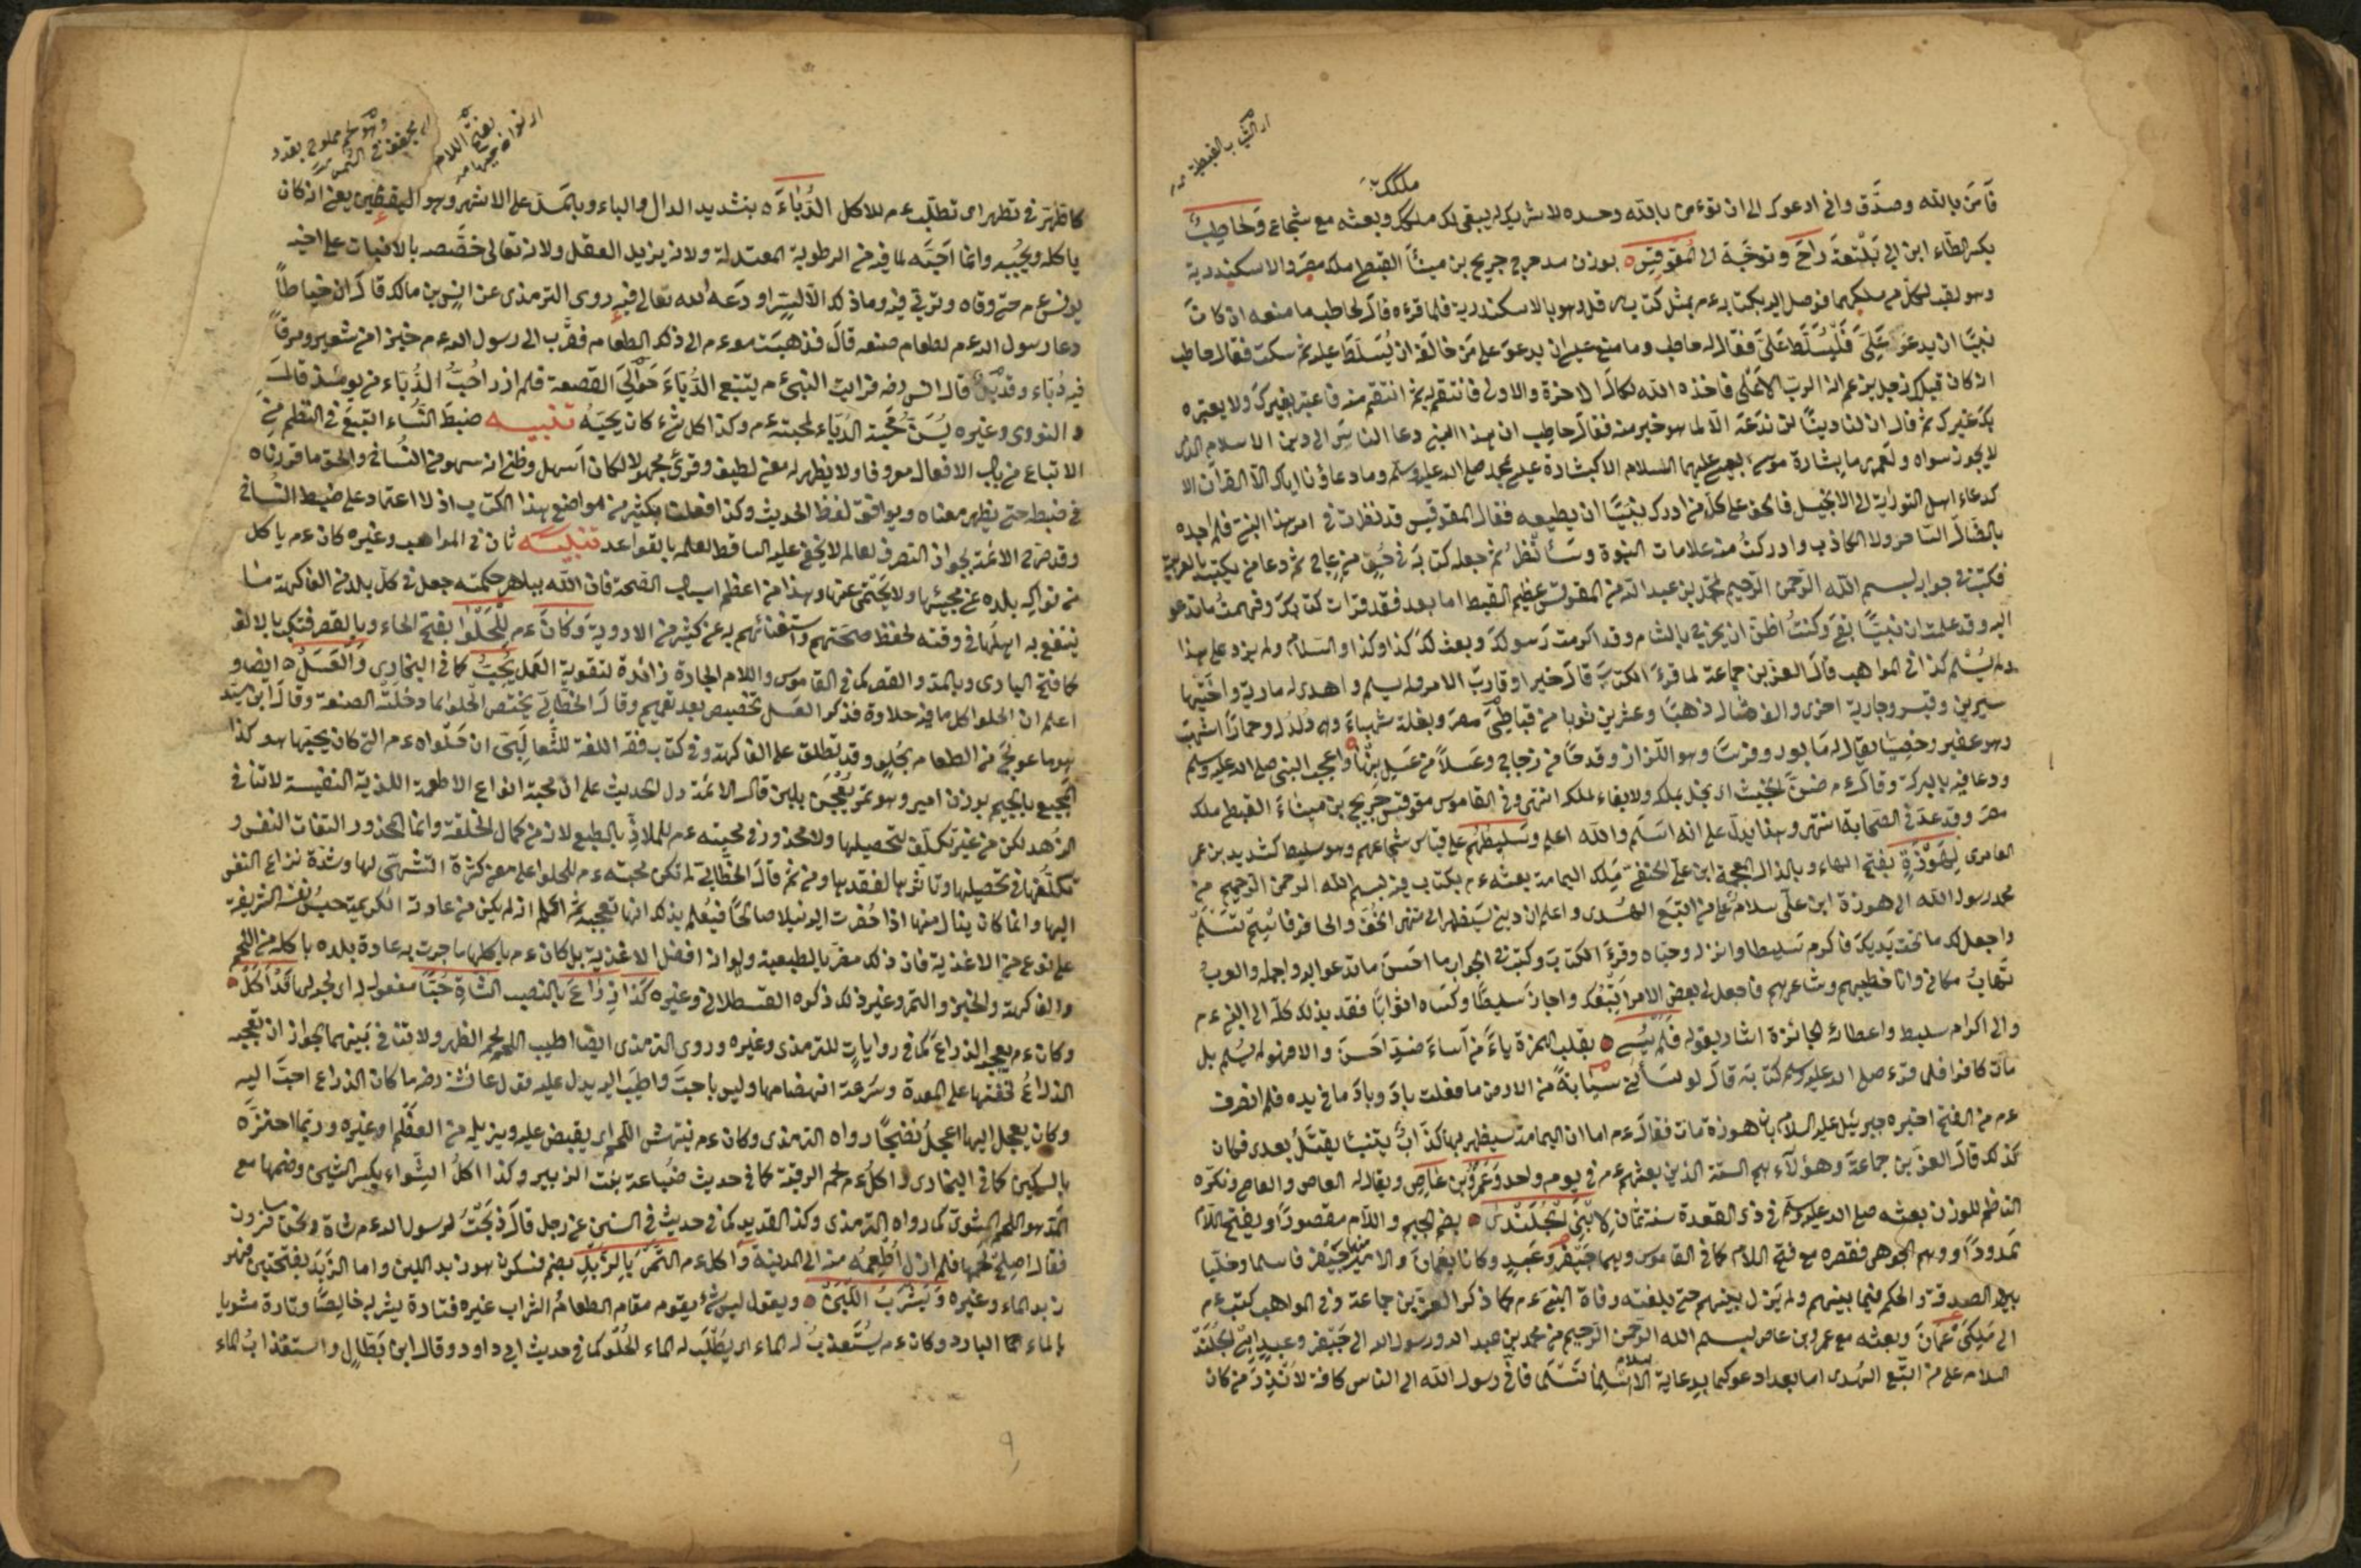 از الثياب القبطية
ملكك
فآمن بالله وصدق واني ادعوك الى ان تؤمن بالله وحده لا شريك له يبقى لك ملكك وبعثه مع شجاع وحاطب
بكسر الطاء ابن ابي بلتعة راح وتوجه الى المقوقس بوزن مدحرج جريج بن ميناً القبطي ملك مصر والاسكندرية
وهو لقب لكل من ملكهما فوصل اليه بكتابه عم بمثل كتاب هرقل وهو بالاسكندرية فلما قرءه قال لحاطب ما منعه ان كان
نبيا ان يدعو علي فليسلط علي فقال له حاطب وما منع عيسى ان يدعو على من خالفه ان يسلط عليه ثم سكت فقال حاطب
انه كان قبلك رجل يزعم انه الرب الاعلى فاخذه الله نكال الاخرة والاولى فانتقم به ثم انتقم منه فاعتبر بغيرك ولا يعتبره
بك غيرك ثم قال ان لنا دينا لن ندعه الا لما هو خير منه فقال حاطب ان هذا النبي دعا الناس الى دين الاسلام الذي
لا يجوز سواه ولعمري ما بشارة موسى بعيسى عليهما السلام الا كبشارة عيسى بمحمد صلى الله عليه وسلم وما دعاؤنا اياك الى القرآن الا
كدعاء اهل التورية الى الانجيل فالحق على كل من ادرك نبيا ان يطيعه فقال المقوقس قد نظرت في امر هذا النبي فلم اجده
بالضال الساحر ولا الكاذب وادركت منه علامات النبوة وسأنظر ثم جعل كتابه في حق من عاج ثم دعا من يكتب بالعربية
فكتب في جوابه بسم الله الرحمن الرحيم لمحمد بن عبد الله من المقوقس عظيم القبط اما بعد فقد قرات كتابك وفهمت ما تدعو
اليه وقد علمت ان نبيا بقي وكنت اظن ان يخرج بالشام وقد اكرمت رسولك وبعث لك كذا وكذا والسلام ولم يزد على هذا
ولم يسلم كذا في المواهب قال العز بن جماعة لما قرء الكتاب قال خيرا وقارب الامر ولم يسلم واهدى له مارية واختها
سيرين وقيسر وجارية اخرى والف مثقال ذهبا وعشرين ثوبا من قباطي مصر وبغلة شهباء وهي دلدل وحمارا اشهب
وهو عفير وخصيا يقال له مابور وفرسا وهو اللزاز وقدحا من زجاج وعسلا من عسل بنها واعجب النبي صلى الله عليه وسلم
ودعا فيه بالبركة وقال عم ضن الخبيث اي بخل بملكه ولا بقاء لملكه انتهى وفي القاموس مقوقس جريج بن ميناء القبطي ملك
مصر وقد عد في الصحابة انتهى وهنا يدل على انه اسلم والله اعلم وسليطهم على قياس شجاعهم وهو سليط كشديد بن عمرو
العامري لهوذة بفتح الهاء وبالذال المعجمة ابن علي الحنفي ملك اليمامة بعثه عم بكتاب فيه بسم الله الرحمن الرحيم من
محمد رسول الله الى هوذة ابن علي سلام على من اتبع الهدى واعلم ان ديني سيظهر الى منتهى الخف والحافر فاسلم تسلم
واجعل لك ما تحت يديك فاكرم سليطا وانزله وحباه وقرء الكتاب وكتب في الجواب ما احسن ما تدعو اليه واجمله والعرب
تهاب مكاني وانا خطيبهم وشاعرهم فاجعل لي بعض الامر اتبعك واجاز سليطا وكساه اثوابا فقدم بذلك كله الى النبي عم
والى اكرام سليط واعطائه الجائزة اشار بقوله فلم يسئ بقلب الهمزة ياء من اساء ضد احسن والا فهو لم يسلم بل
مات كافرا فلما قرء صلى الله عليه وسلم كتابه قال لو سألني سيابة من الارض ما فعلت باد وباد ما في يده فلم انصرف
عم من الفتح اخبره جبرئيل عليه السلام بان هوذة مات فقال عم اما ان اليمامة سيظهر بها كذاب يتنبأ يقتل بعدي فكان
كذلك قال العز بن جماعة وهؤلاء هم الستة الذين بعثهم عم في يوم واحد وعمرو بن عاص ويقال له العاص والعاصي ونكره
الناظم للوزن بعثه صلى الله عليه وسلم في ذي القعدة سنة ثمان لابني الجلندى بضم الجيم واللام مقصورا وبفتح اللام
ممدودا ووهم الجوهري فقصره مع فتح اللام كما في القاموس وهما جيفر وعبد وكانا بعمان والامير منهما جيفر فاسلما وخليا
بينه الصدقة والحكم فيما بينهم ولم يزل بينهم حتى بلغته وفاة النبي عم كما ذكر العز بن جماعة وفي المواهب كتب عم
الى ملكي عمان وبعثه مع عمرو بن عاص بسم الله الرحمن الرحيم من محمد بن عبد الله ورسول الله الى جيفر وعبد ابني الجلندى
السلام على من اتبع الهدى اما بعد ادعوكما بدعاية الاسلام اسلما تسلما فاني رسول الله الى الناس كافة لانذر من كان
بفتح اللام
وهو لحم مملوح يقدد
اي يجفف في الشمس
كما ظهر في تطهر اي تطلب عم للاكل الدباء بتشديد الدال والباء وبالمد على الاشهر وهو اليقطين يعني انه كان
ياكله ويحبه وانما احبه لما فيه من الرطوبة المعتدلة ولانه يزيد العقل ولانه تعالى خصه بالانبات على اخيه
يونس عم حتى وقاه وتربى فيه وما ذلك الا لسر اودعه الله تعالى فيه روى الترمذي عن انس بن مالك قال ان خياطا
دعا رسول الله عم لطعام صنعه قال فذهبت معه عم الى ذلك الطعام فقرب الى رسول الله عم خبزا من شعير ومرقا
فيه دباء وقديد قال انس رضه فرايت النبي عم يتتبع الدباء حوالي القصعة فلم ازل احب الدباء من يومئذ قال
النووي وغيره يسن محبة الدباء لمحبته عم وكذا كل شئ كان يحبه تنبيه ضبط الشاء اتبع في النظم من
الاتباع من باب الافعال معروفا ولا يظهر له معنى لطيف وقرئ مجهولا لكان اسهل وظني انه سهو من النساخ والحق ما قررناه
في ضبطه حتى يظهر معناه ويوافق لفظ الحديث وكذا فعلت بكثير من مواضع هذا الكتاب اذ لا اعتماد على ضبط النساخ
وقد صرح الائمة بجواز التصرف لعالم لا يخفى عليه الساقط لعلمه بالقواعد تنبيه ثان في المواهب وغيره كان عم ياكل
من فواكه بلده عند مجيئها ولا يحتمي عنها وهذا من اعظم اسباب الصحة فان الله بباهر حكمته جعل في كل بلد من الفاكهة ما
ينتفع به اهلها في وقته لحفظ صحتهم واستغنائهم به عن كثير من الادوية وكان عم للحلوا بفتح الحاء وبالقصر فتكتب بالالف
كما فتح الباري وبالمد والقصر كما في القاموس واللام الجارة زائدة لتقوية العمل يحب كما في البخاري والعسل ايضا و
اعلم ان الحلوا كل ما فيه حلاوة فذكر العسل تخصيص بعد تعميم وقال الخطابي يختص الحلوا بما دخلته الصنعة وقال ابن سيده
هو ما عولج من الطعام بحلو وقد تطلق على الفاكهة وفي كتاب فقه اللغة للثعالبي ان حلواه عم التي كان يحبها هو كذا
المجيع بالجيم بوزن امير وهو تمر يعجن بلبن قال الائمة دل الحديث على ان محبة انواع الاطعمة اللذيذة النفيسة لا تنافي
الزهد لكن من غير تكلف لتحصيلها ولا محذور في محبته عم للملاذ بالطبع لانه من كمال الخلقة وانما المحذور التفات النفس و
تكلفها في تحصيلها وتاثرها لفقدها ومن ثم قال الخطابي لم تكن محبته عم للحلوا على معنى كثرة التشهي لها وشدة نزاع النفس
اليها وانما كان ينال منها اذا حضرت اليه نيلا صالحا فيعلم بذلك انها تعجبه ثم اعلم انه لم يكن من عادته الكريمة حبس نفسه الشريفة
على نوع من الاغذية فان ذلك مضر بالطبيعة ولو انه افضل الاغذية بل كان عم ياكلها ما جرت به عادة بلده باكله من اللحم
والفاكهة والخبز والتمر وغير ذلك ذكره القسطلاني وغيره كذا ذراع بالنصب الشاة حبا مفعول له اي لحبه لها قد اكل
وكان عم يعجبه الذراع كما في روايات للترمذي وغيره وروى الترمذي ايضا اطيب اللحم لحم الظهر ولا تنافي بينهما لجواز ان تعجبه
الذراع لخفتها على المعدة وسرعة انهضامها وليس باحب واطيب اليه يدل عليه قول عائشة رضها ما كان الذراع احب اليه
وكان يعجل اليها اعجل نضجا رواه الترمذي وكان عم ينتهش اللحم اي يقبض عليه ويزيله من العظم او غيره وربما احتزه
بالسكين كما في البخاري واكل عم لحم الرقبة كما في حديث ضباعة بنت الزبير وكذا اكل الشواء بكسر الشين وضمها مع
المد هو اللحم المشوي كما رواه الترمذي وكذا القديد كما في حديث في السنن عن رجل قال ذبحت لرسول الله عم شاة ونحن مسافرون
فقال اصلح لحمها فلم ازل اطعمه منه الى المدينة واكل عم التمر بالزبد بضم فسكون هو زبد اللبن واما الزبد بفتحتين فهو
زبد الماء وغيره ويشرب اللبن ويقول ليس شئ يقوم مقام الطعام والشراب غيره فتارة يشربه خالصا وتارة مشوبا
بالماء كما البارد وكان عم يستعذب له الماء اي يطلب له الماء الحلو كما في حديث ابي داود وقال ابن بطال واستعذاب الماء